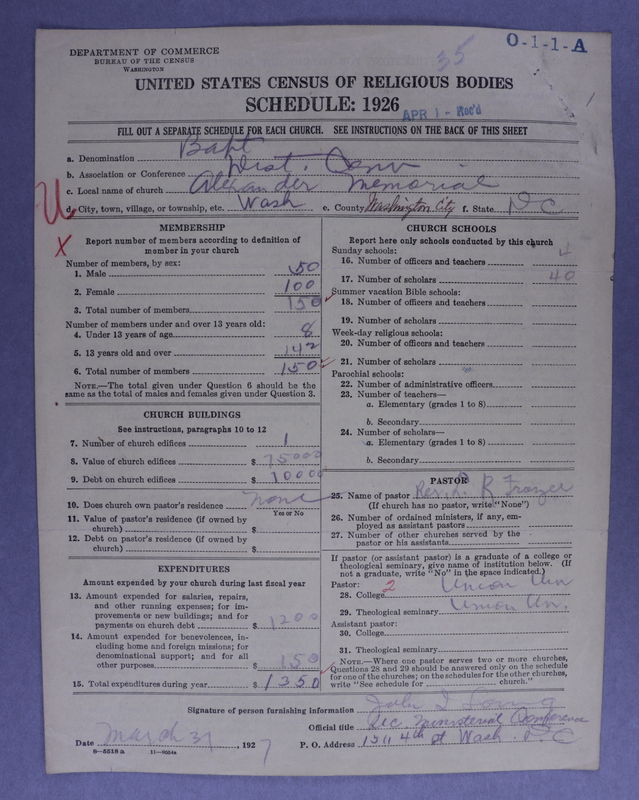 DEPARTMENT OF COMMERCE
BUREAU OF THE CENSUS
WASHINGTON
35
O-1-1-A
UNITED STATES CENSUS OF RELIGIOUS BODIES
SCHEDULE: 1926
APR 1 - Rec'd
FILL OUT A SEPARATE SCHEDULE FOR EACH CHURCH. SEE INSTRUCTIONS ON THE BACK OF THIS SHEET
a. Denomination Bapt
b. Association or Conference Dist. Conv
c. Local name of church Alexander Memorial
d. City, town, village, or township, etc. Wash e. County Washington City f. State D C
MEMBERSHIP
X
Report number of members according to definition of
member in your church
Number of members, by sex:
1. Male 50
2. Female 100
3. Total number of members 150
Number of members under and over 13 years old:
4. Under 13 years of age 8
5. 13 years old and over 142
6. Total number of members 150
NOTE.—The total given under Question 6 should be the
same as the total of males and females given under Question 3.
CHURCH BUILDINGS
See instructions, paragraphs 10 to 12
7. Number of church edifices 1
8. Value of church edifices $ 75000
9. Debt on church edifices $ 10000
10. Does church own pastor's residence? none
Yes or No
11. Value of pastor's residence (if owned by
church) $
12. Debt on pastor's residence (if owned by
church) $
EXPENDITURES
Amount expended by your church during last fiscal year
13. Amount expended for salaries, repairs,
and other running expenses; for im-
provements or new buildings; and for
payments on church debt $ 1200
14. Amount expended for benevolences, in-
cluding home and foreign missions; for
denominational support; and for all
other purposes $ 150
15. Total expenditures during year $ 1350
CHURCH SCHOOLS
Report here only schools conducted by this church
Sunday schools:
16. Number of officers and teachers 4
17. Number of scholars 40
Summer vacation Bible schools:
18. Number of officers and teachers
19. Number of scholars
Week-day religious schools:
20. Number of officers and teachers
21. Number of scholars
Parochial schools:
22. Number of administrative officers
23. Number of teachers—
a. Elementary (grades 1 to 8)
b. Secondary
24. Number of scholars—
a. Elementary (grades 1 to 8)
b. Secondary
PASTOR
25. Name of pastor Rev. R Frazer
(If church has no pastor, write "None")
26. Number of ordained ministers, if any, em-
ployed as assistant pastors
27. Number of other churches served by the
pastor or his assistants
If pastor (or assistant pastor) is a graduate of a college or
theological seminary, give name of institution below. (If
not a graduate, write "No" in the space indicated.)
Pastor: 2
28. College Union Un
29. Theological seminary Union Un.
Assistant pastor:
30. College
31. Theological seminary
NOTE.—Where one pastor serves two or more churches,
Questions 28 and 29 should be answered only on the schedule
for one of the churches; on the schedules for the other churches,
write "See schedule for church."
Signature of person furnishing information John I Loving
Official title Sec. Ministerial Conference
Date March 31, 1927 P. O. Address 1511 4th st Wash. D C
8—5518 a 11—9054a